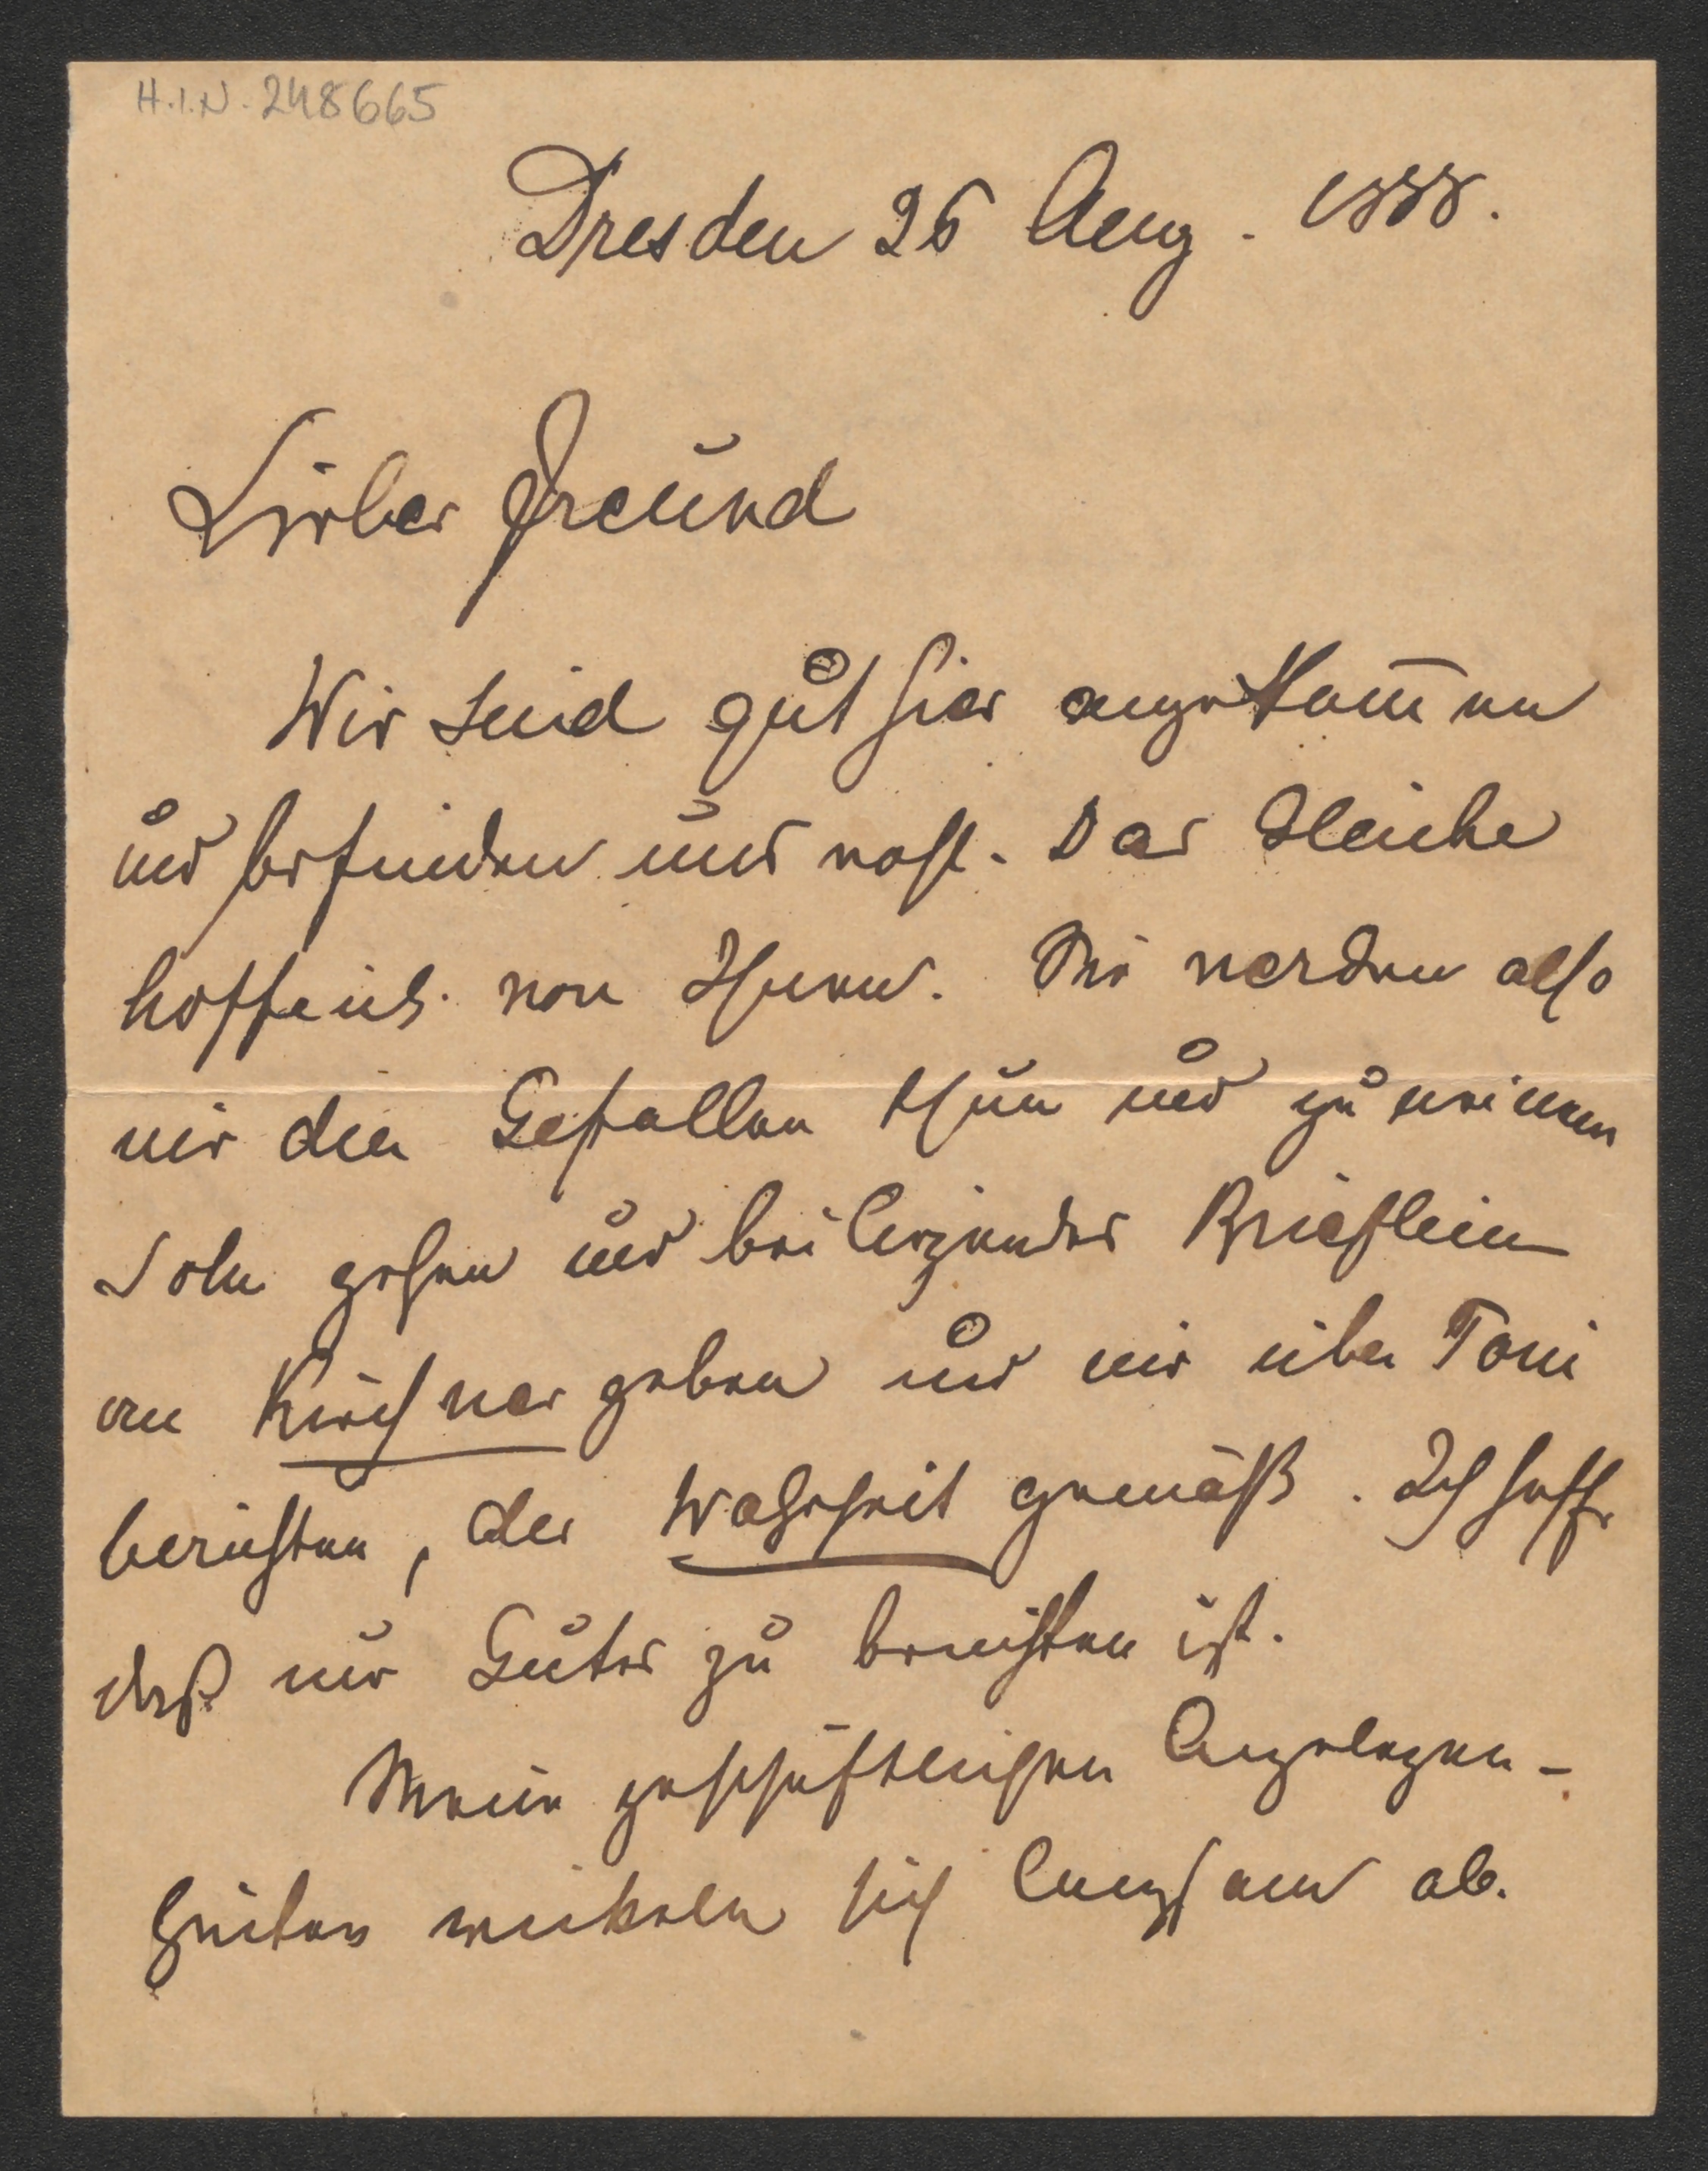 H.I.N. 248665
Dresden 26 Aug. 1888.
Lieber Freund
Wir sind gut hier angekom̅en
und befinden uns wohl. Das Gleiche
hoffe ich von Ihnen. Sie werden also
mir den Gefallen thun und zu meinem
Sohn gehen und beiliegendes Brieflein
an Kirchner geben und mir über Toni
berichten, der Wahrheit gemäß. Ich hoffe
daß nur Gutes zu berichten ist.
Meine geschäftlichen Angelegen-
heiten wickeln sich langsam ab.